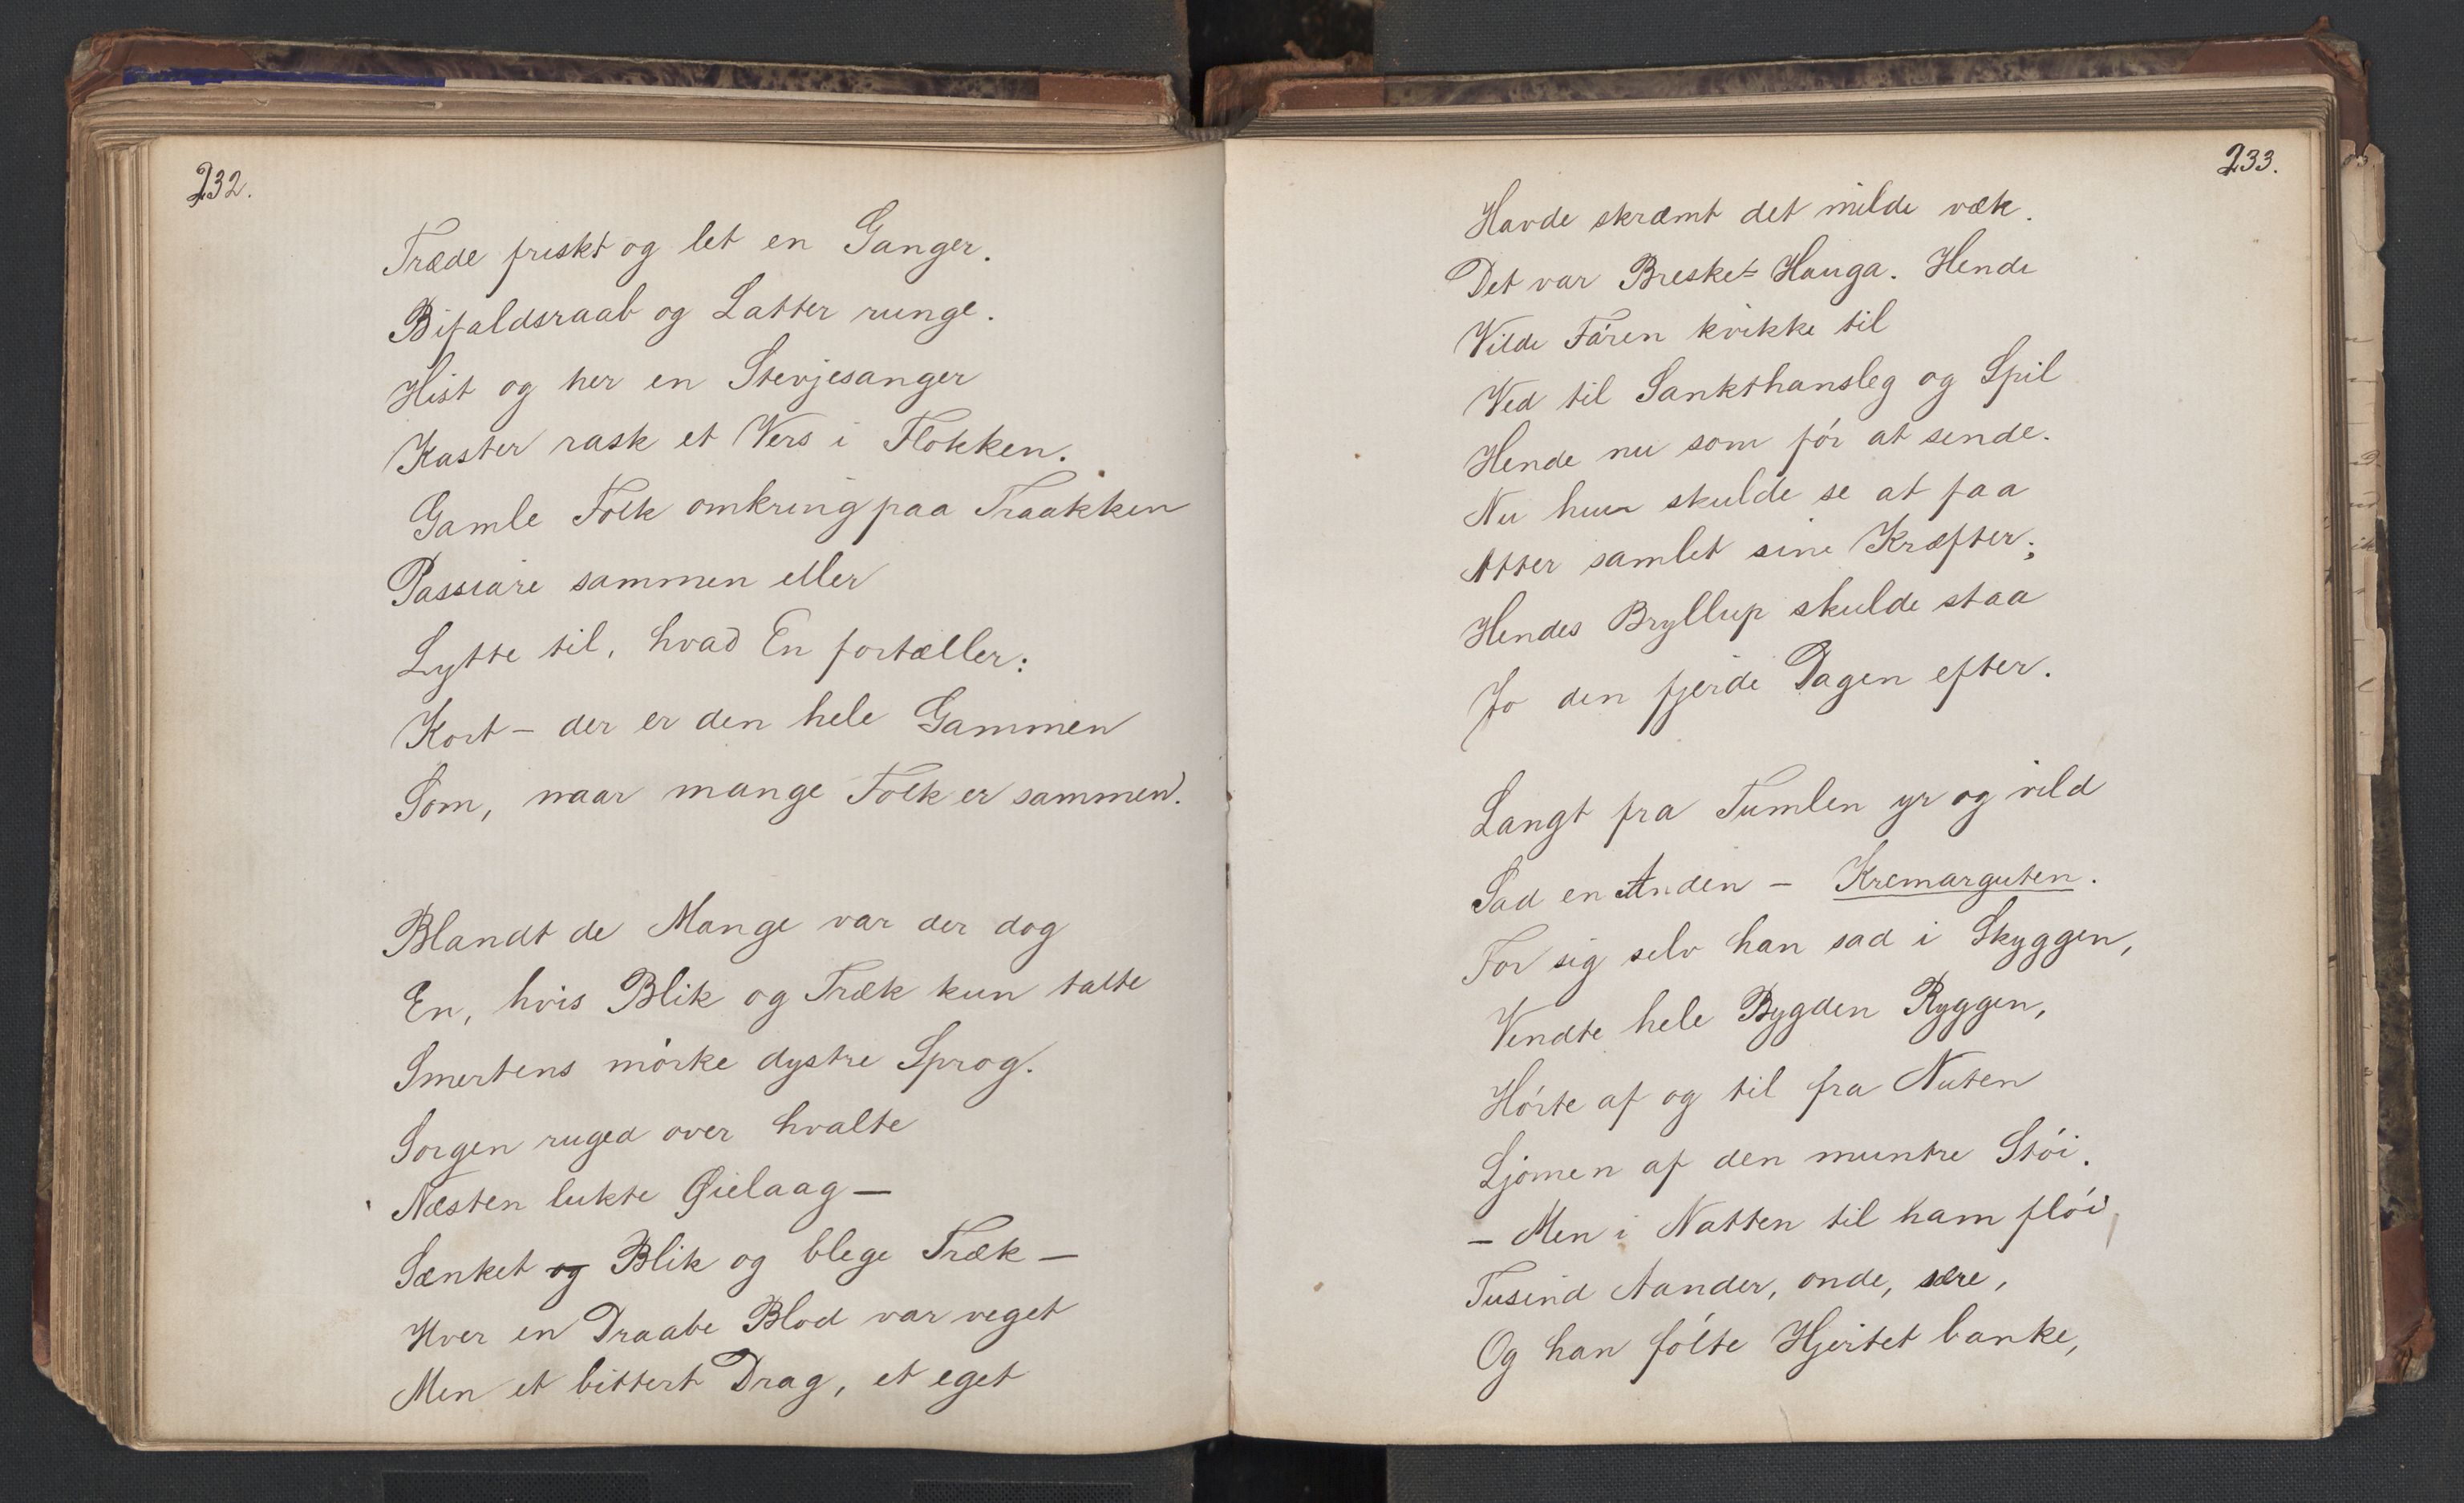 232.
Træde friskt og let en Ganger.
Bifaldsraab og Latter runge.
Hist og her en Stevjesanger
Kaster rask et Vers i Flokken.
Gamle Folk omkring paa Traakken
Passiare sammen eller
Lytte til, hvad En fortæller:
Kort – der er den hele Gammen
Som, naar mange Folk er sammen.
Blandt de Mange var der dog
En, hvis Blik og Træk kun talte
Smertens mørke dystre Sprog.
Sorgen ruged over hvalte
Næsten lukte Øielaag –
Sænket og Blik og blege Træk –
Hver en Draabe Blod var veget
Men et bittert Drag, et eget
233.
Havde skræmt det milde væk.
Det var Breske-Hauga. Hende
Vilde Faren kvikke til
Ved til Sankthansleg og Spil
Hende nu som før at sende.
Nu hun skulde se at faa
Atter samlet sine Kræfter;
Hendes Bryllup skulde staa
Jo den fjerde Dagen efter.
Langt fra Tumlen yr og vild
Sad en Anden – Kremarguten.
For sig selv han sad i Skyggen,
Vendte hele Bygden Ryggen,
Hørte af og til fra Nuten
Ljomen af den muntre Støi.
– Men i Natten til ham fløi
Tusind Aander, onde, sære,
Og han følte Hjertet banke,